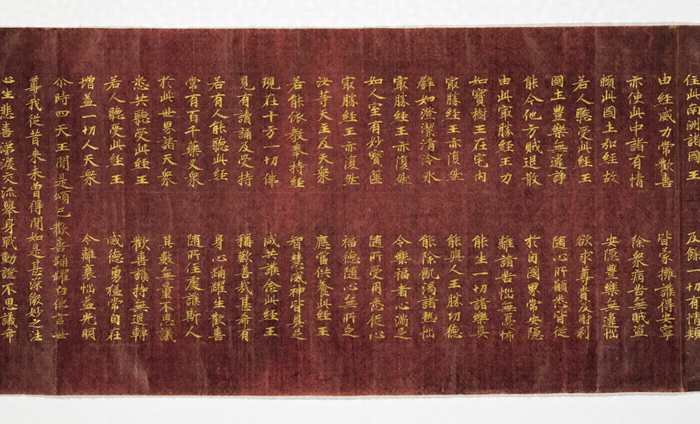 住此南洲諸國王　及餘一切有情類
由經威力常歡喜　皆蒙擁護得安寧
亦使此中諸有情　除衆病苦無賊盜
賴此國土弘經故　安隱豐樂無違惱
若人聽受此經王　欲求尊貴及財利
國土豐樂無違諍　隨心所願悉皆從
能令他方賊退散　於自國界常安隱
由此最勝經王力　離諸苦惱無憂怖
如寶樹王在宅内　能生一切諸樂具
最勝經王亦復然　能與人王勝功德
譬如澄潔清冷水　能除飢渴諸熱惱
最勝經王亦復然　令樂福者心滿足
如人室有妙寶篋　隨所受用悉從心
最勝經王亦復然　福德隨心無所乏
汝等天主及天衆　應當供養此經王
若能依教奉持經　智慧威神皆具足
現在十方一切佛　咸共護念此經王
見有讀誦及受持　稱歎善哉甚希有
若有人能聽此經　身心踊躍生歡喜
常有百千藥叉衆　隨所住處護斯人
於此世界諸天衆　其數無量不思議
悉共聽受此經王　歡喜護持無退轉
若人聽受此經王　威德勇猛常自在
增益一切人天衆　令離衰惱益光明
尒時四天王聞是頌已歡喜踊躍白佛言世
尊我從昔來未曾得聞如是甚深微妙之法
心生悲喜涕淚交流舉身戰動證不思議希